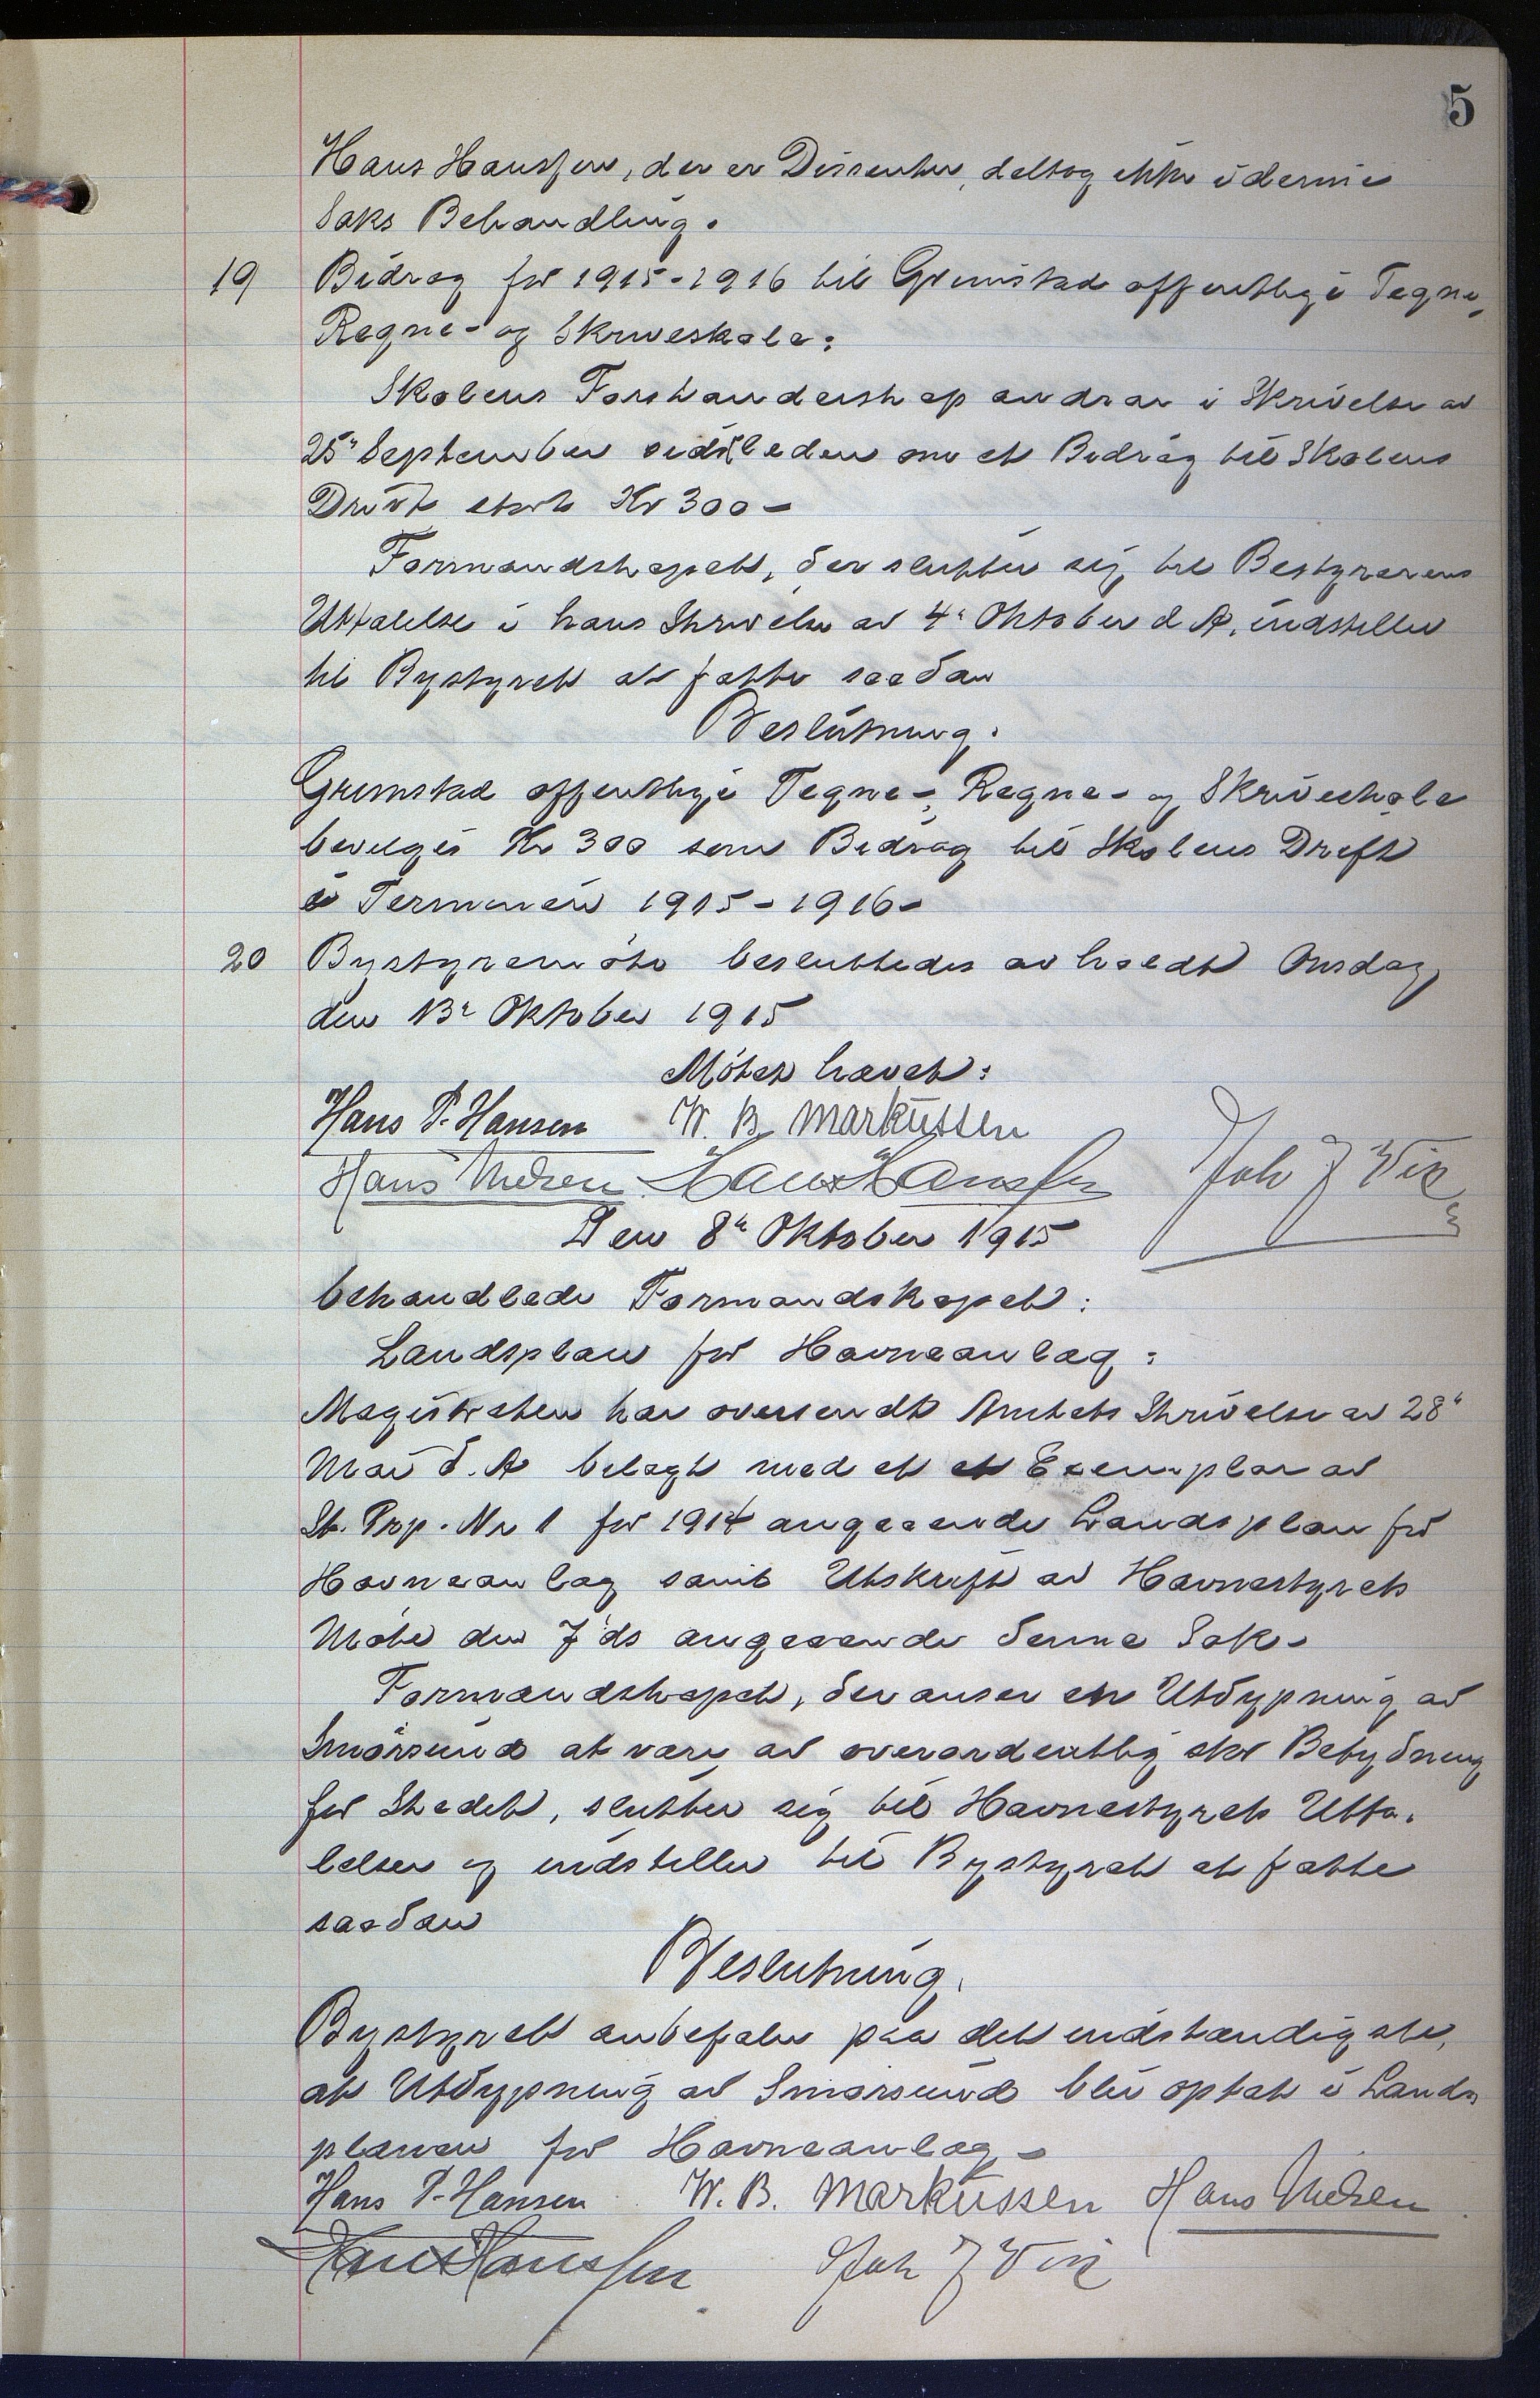 5
Hans Hanssen, der er Dissenter, deltog ikke i denne
Saks Behandling.
19 Bidrag for 1915-1916 til Grimstad offentlige Tegne,
Regne- og Skriveskole:
Skolens Forstanderskap andrar i Skrivelse av
25" September sidstleden om et Bidrag til Skolens
Drivt stort Kr 300-
Formandskapet, der slutter sig til Bestyrerens
Uttalelse i hans Skrivelse av 4" Oktober d. A. indstiller
til Bystyret at fatte saadan
Beslutning.
Grimstad offentlige Tegne-, Regne- og Skriveskole
bevilges Kr 300 som Bidrag til Skolens Drift
i Terminen 1915-1916-
20 Bystyremøte besluttedes avholdt Onsdag
den 13" Oktober 1915
Møtet hævet:
Hans P. Hansen W. B. Markussen
Hans Nielsen Hans Hanssen Joh J Vik
Den 8" Oktober 1915
behandlede Formandskapet:
Landsplan for Havneanlæg:
Magistraten har oversendt Amtets Skrivelse av 28"
Mai d. A belagt med et et Exemplar av
St. Prp. Nr 1 for 1914 angaaende Landsplan for
Havneanlæg samt Utskrift av Havnestyrets
Møte den 7' ds angaaende denne Sak-
Formandskapet, der anser en Utdypning av
Smørsund at være av overordentlig stor Betydning
for Stedet, slutter sig til Havnestyrets Utta-
lelser og indstiller til Bystyret at fatte
saadan
Beslutning.
Bystyret anbefaler paa det indstændigste,
at Utdypning av Smørsund blir optat i Lands
planen for Havneanlæg-
Hans P. Hansen W. B. Markussen Hans Nielsen
Hans Hanssen Joh J Vik